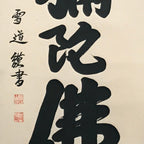 彌陀佛
雪道鐵書